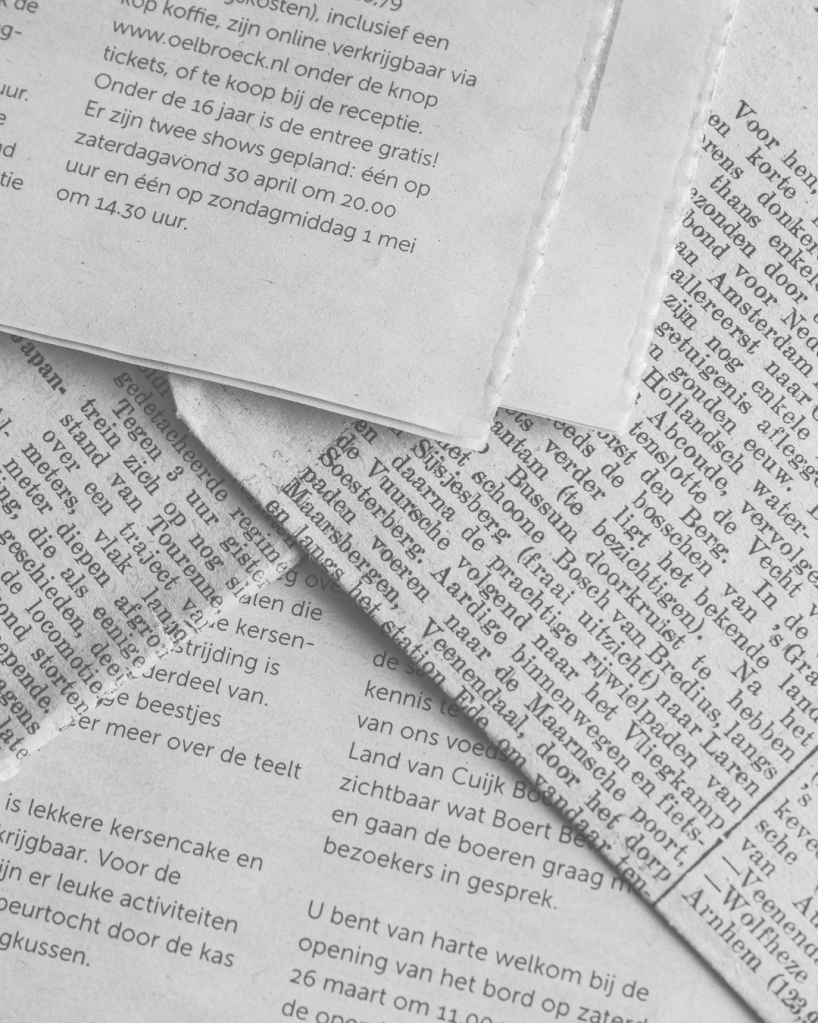 de
kop koffie, zijn online verkrijgbaar via
www.oelbroeck.nl onder de knop
tickets, of te koop bij de receptie.
Onder de 16 jaar is de entree gratis!
Er zijn twee shows gepland: één op
zaterdagavond 30 april om 20.00
uur en één op zondagmiddag 1 mei
om 14.30 uur.
Voor hen,
en korte
donker
thans enkele
ezonden door
bond voor Ned
an Amsterdam
allereerst naar
zijn nog enkele
getuigenis aflegge
n gouden eeuw.
Hollandsch water-
Abcoude, vervolge
tenslotte de Vecht
orst den Berg. In de
eeds de bosschen van 's Gra
ets verder ligt het bekende land
antam (te bezichtigen). Na het
Bussum doorkruist te hebben
het schoone Bosch van Bredius, langs 's
Sijsjesberg (fraai uitzicht) naar Laren
en daarna de prachtige rijwielpaden van
de Vuursche volgend naar het Vliegkamp
Soesterberg. Aardige binnenwegen en fiets-
paden voeren naar de Maarnsche poort,
Maarsbergen, Veenendaal, door het dorp
en langs het station Ede om vandaar ten-
sche
van
—Veenenda
—Wolfheze
Arnhem (123,9
Japan-
trein zich op nog
stand van Tourenne
over een traject van
meters, vlak langs
meter diepen afgro
die als eenige
geschieden, deed
de locomotie
ond storten
epende.
gedetacheerde regime
Tegen 3 uur giste
alen die
e kersen-
strijding is
derdeel van.
ge beestjes
er meer over de teelt
is lekkere kersencake en
krijgbaar. Voor de
ijn er leuke activiteiten
peurtocht door de kas
gkussen.
kennis te
van ons voeds
Land van Cuijk Boe
zichtbaar wat Boert Be
en gaan de boeren graag m
bezoekers in gesprek.
U bent van harte welkom bij de
opening van het bord op zaterd
26 maart om 11.00